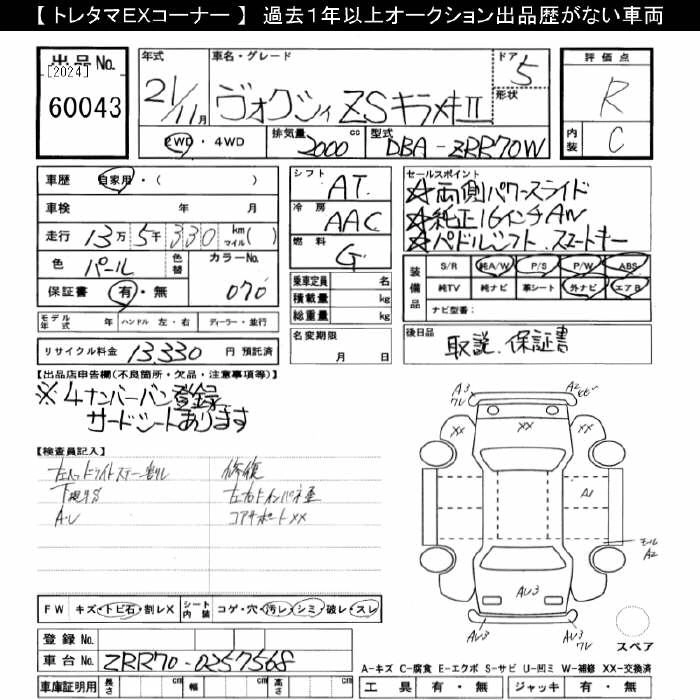 【 トレタマEXコーナー 】 過去1年以上オークション出品歴がない車両
出品No.
[2024]
60043
年式
21/11月
車名・グレード
ヴォクシィ ZSキラメキII
ドア
5
形状
2WD・4WD
排気量
2000 cc
型式
DBA-ZRR70W
評価点
R
内装
C
車歴 自家用・( )
車検 年 月
走行 13万5千330 km マイル( )
色 パール 色替 カラーNo. 070
保証書 有・無
モデル年式 年 ハンドル 左・右 ディーラー・並行
リサイクル料金 13,330 円 預託済
シフト AT
冷房 AAC
燃料 G
乗車定員 名
積載量 kg
総重量 kg
名変期限
月 日
セールスポイント
☆両側パワースライド
☆純正16インチAW
☆パドルシフト.スマートキー
装備品
S/R 純A/W P/S P/W ABS
純TV 純ナビ 革シート 外ナビ エアB
ナビ型番:
後日品
取説、保証書
【出品店申告欄(不良箇所・欠品・注意事項等)】
※4ナンバーバン登録
サードシートあります
【検査員記入】
下廻サビ
修復
コアサポートXX
A3
A2
XX XX XX
A1
A2
AU3
AU3
AU3
FW キズ・トビ石・割レX
シート内装 コゲ・穴・汚レ・シミ・破レ・スレ
スペア
登録No.
車台No. ZRR70-0257568
車庫証明用 長さ cm 幅 cm 高さ cm
A-キズ C-腐食 E-エクボ S-サビ U-凹ミ W-補修 XX-交換済
工具 有・無 ジャッキ 有・無